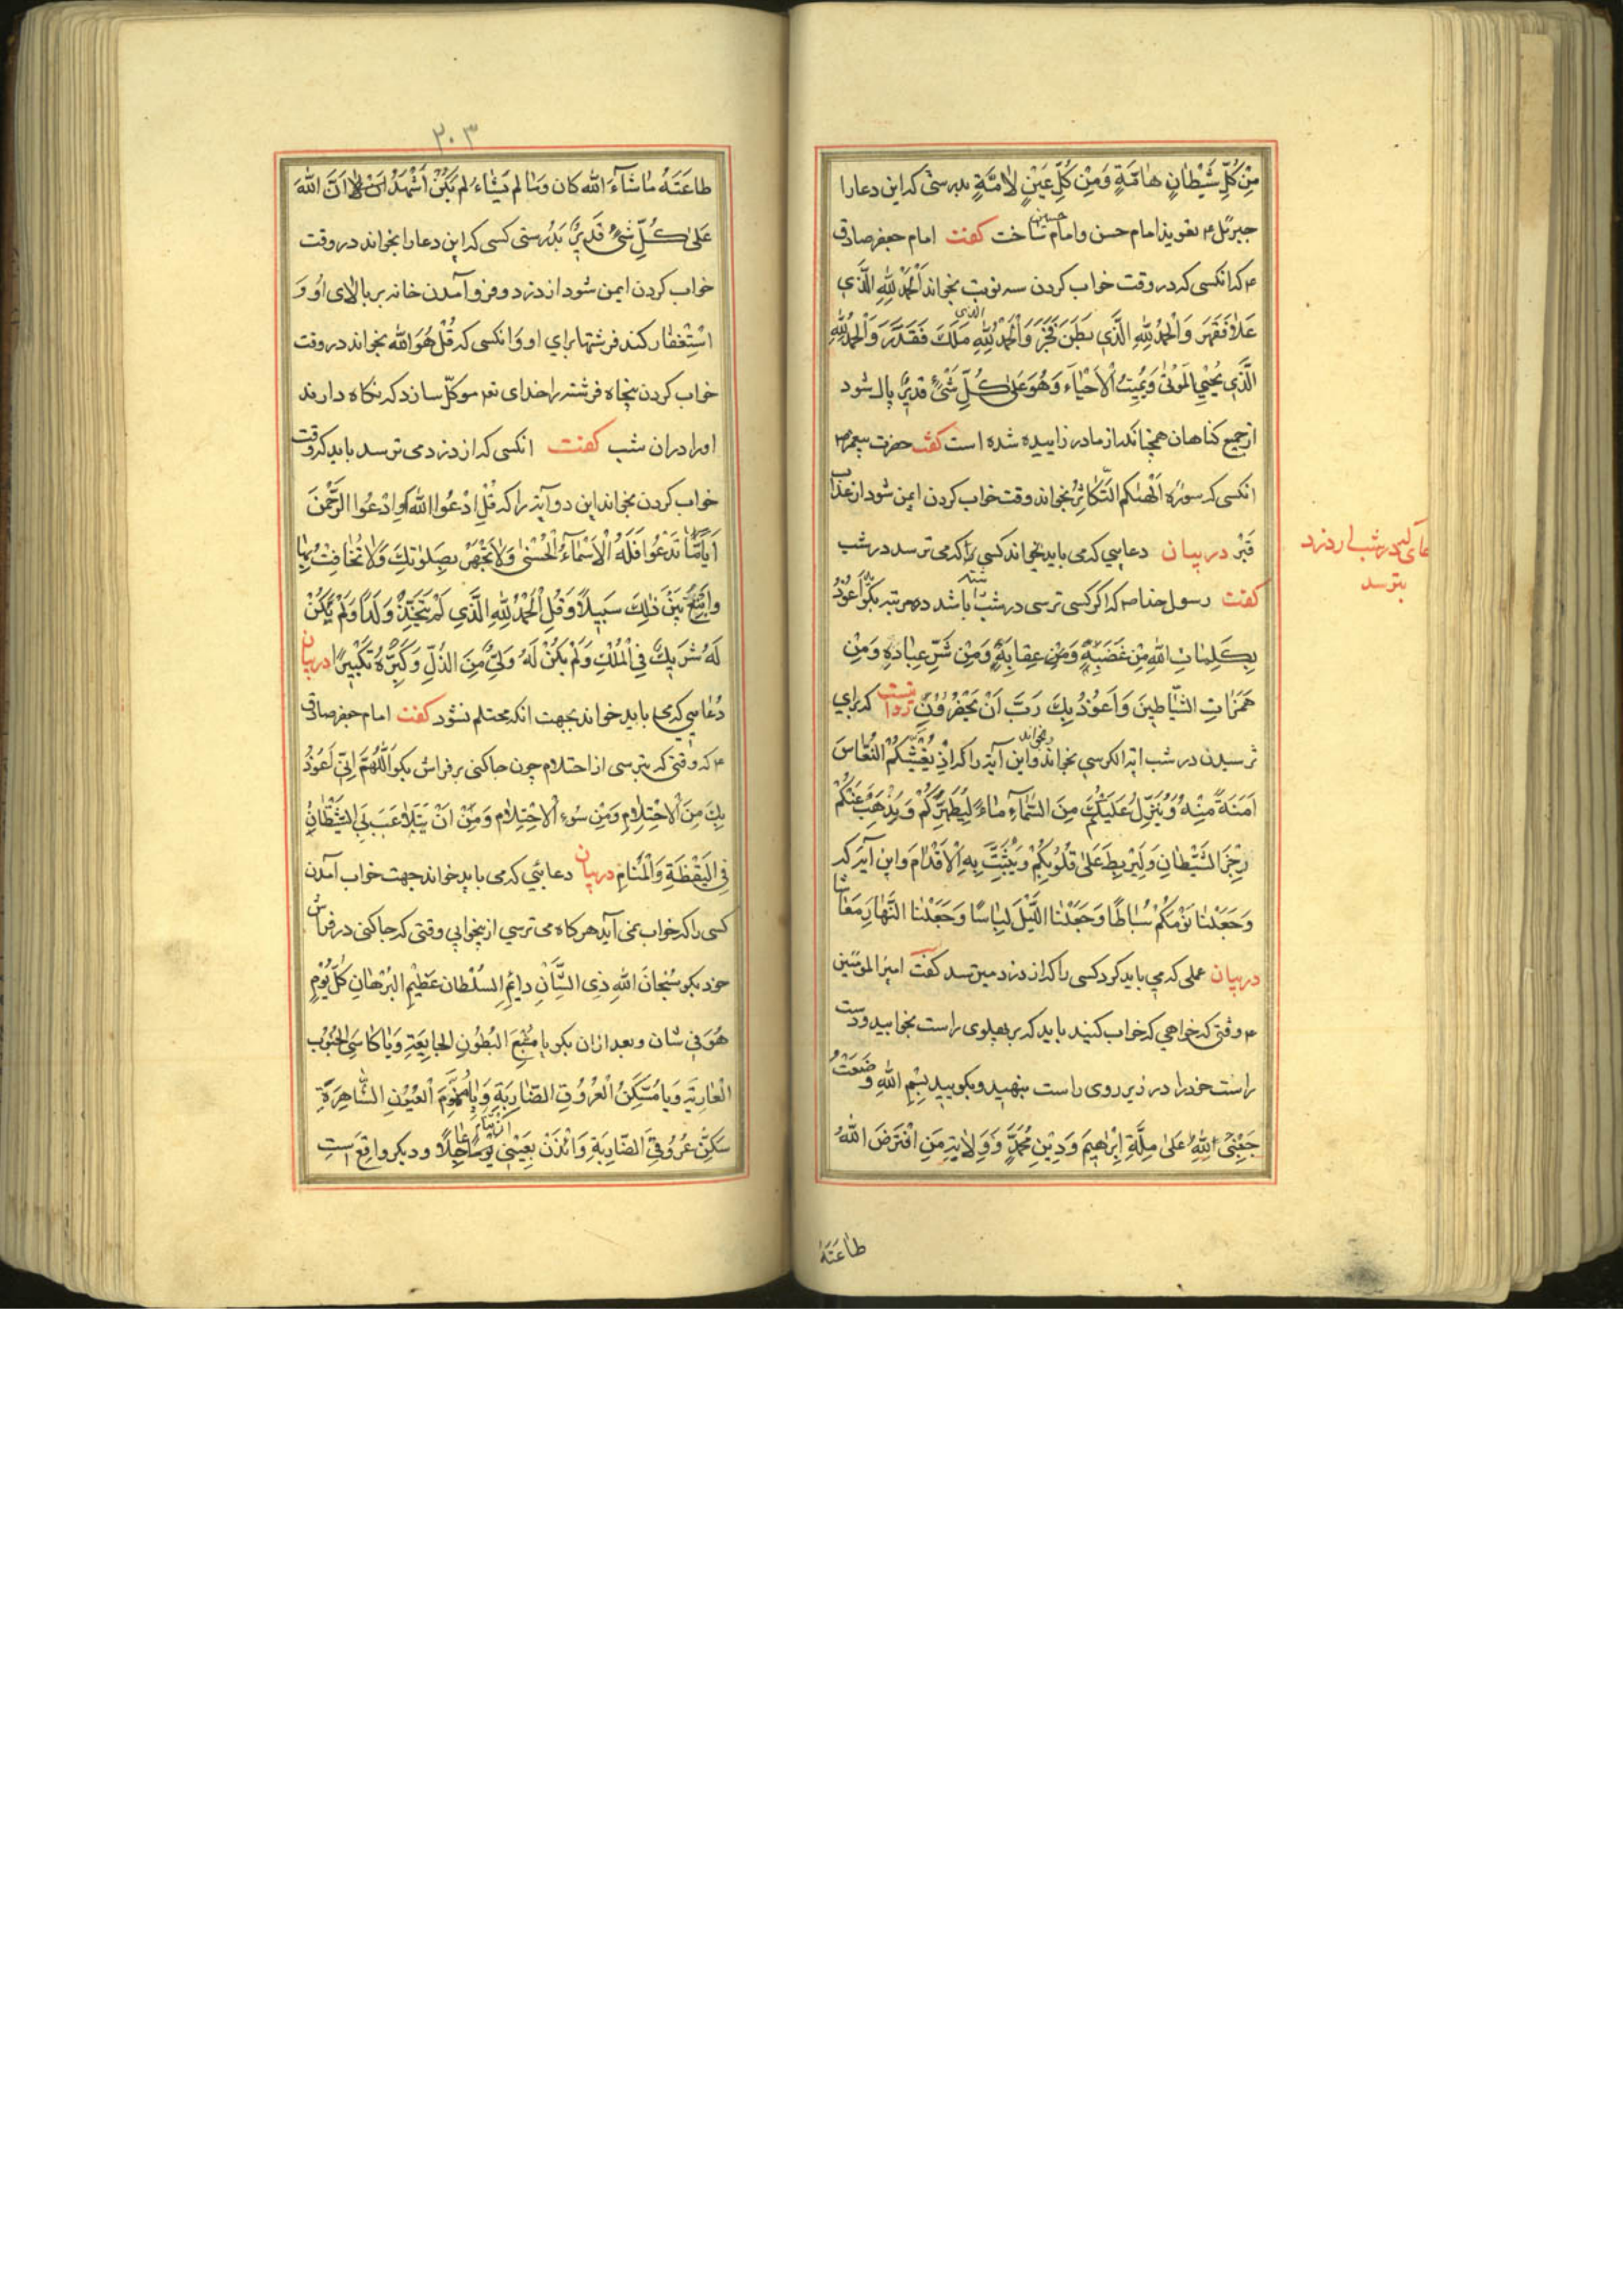 مِنْ كُلِّ شَيْطانٍ هامَّةٍ وَمِنْ كُلِّ عَيْنٍ لامَّةٍ بدرستی که این دعا را
جبرئل ع تعویذ امام حسن وامام حسین ساخت کفت امام جعفر صادق
ع که انکسی که در وقت خواب کردن سه نوبت بخواند اَلْحَمْدُ لِلّٰهِ الَّذي
عَلاٰ فَقَهَرَ وَالْحَمْدُ لِلّٰهِ الَّذي بَطَنَ فَخَبَرَ وَالْحَمْدُ لِلّٰهِ الذی مَلَكَ فَقَدَرَ وَالْحَمْدُ لِلّٰهِ
الَّذي يُحْيِي الْمَوْتىٰ وَيُمِيتُ الْاَحْيٰاءَ وَهُوَ عَلىٰ كُلِّ شَيْءٍ قَديرٌ پاك شود
از جمیع کناهان همچنانکه از مادر زاییده شده است کفت حضرت پیغمبر ص
انکسی که سوره اَلْهٰيكم التَّكاثُرُ بخواند وقت خواب کردن ایمن شود از عذاب
قَبْر در بیان دعایی که می باید بخواند کسی را که می ترسد در شب
کفت رسول خدا ص که اکر کسی ترسی در شب باشد ده مرتبه بکو اَعُوذُ
بِكَلِماتِ اللّٰهِ مِنْ غَضَبِهِ وَمِنْ عِقابِهِ وَمِنْ شَرِّ عِبادِهِ وَمِنْ
هَمَزاتِ الشَّياطينَ وَاَعُوذُ بِكَ رَبِّ اَنْ يَحْضُرُونِ روایتست که برای
ترسیدن در شب ایة الکرسی بخواند و بخواند این آیه را که اِذْ يُغَشّيكُمُ النُّعاسَ
اَمَنَةً مِنْهُ وَيُنَزِّلُ عَلَيْكُمْ مِنَ السَّمآءِ ماءً لِيُطَهِّرَكُمْ وَيُذْهِبَ عَنْكُمْ
رِجْزَ الشَّيْطانِ وَلِيَرْبِطَ عَلىٰ قُلُوبِكُمْ وَيُثَبِّتَ بِهِ الْاَقْدامَ واین آیه که
وَجَعَلْنا نَوْمَكُمْ سُباطًا وَجَعَلْنَا اللَّيْلَ لِباسًا وَجَعَلْنَا النَّهارَ مَعاشا
در بیان عملی که می باید کرد کسی را که از دزد میترسد کفت امیر المؤمنین
ع وقتی که خواهی که خواب کنید باید که بر پهلوی راست بخوابید ودست
راست خود را در زیر روی راست بنهید وبکویید بِسْمِ اللّٰهِ وَضَعْتُ
جَنْبي لِلّٰهِ عَلىٰ مِلَّةِ اِبْرٰهيمَ وَدينِ مُحَمَّدٍ وَوِلايَةِ مَنِ افْتَرَضَ اللّٰهُ
طاعَتَهُ
دعای که در شب از دزد
بترسد
۲۰۳
طاعَتَهُ ماشآءَ اللّٰه كان وَما لم يَشاء لم يَكُنْ اَشْهَدُ اَنَّ اللّٰهَ
عَلىٰ كُلِّ شَيْءٍ قَديرٌ بَدُرستی کسی که این دعا را بخواند در وقت
خواب کردن ایمن شود از دزد وفرو آمدن خانه بر بالای او وَ
اسْتِغْفار کند فرشتها برای او وَانکسی که قُلْ هُوَ اللّٰه بخواند در وقت
خواب کردن پنجاه فرشته را خدای تع موکّل سازد که نکاه دارند
اورا در ان شب کفت انکسی که از دزد می ترسد باید که وقت
خواب کردن بخواند این دو آیه را که قُلِ ادْعُوا اللّٰهَ اَوِ ادْعُوا الرَّحْمٰنَ
اَيّاًمّا تَدْعُوا فَلَهُ الْاَسْمآءُ الْحُسْنىٰ وَلاٰ تَجْهَرْ بِصَلوٰتِكَ وَلاٰ تُخافِتْ بِها
وابْتَغِ بَيْنَ ذٰلِكَ سَبيلًا وَقُلِ الْحَمْدُ لِلّٰهِ الَّذي لَمْ يَتَّخِذْ وَلَدًا وَلَمْ يَكُنْ
لَهُ شَريكٌ فِي الْمُلْكِ وَلَمْ يَكُنْ لَهُ وَلِيٌّ مِنَ الذُّلِّ وَكَبِّرْهُ تَكْبيرًا در بیان
دُعایی که می باید خواند بجهت انکه محتلم نشود کفت امام جعفر صادق
ع که وقتی که بترسی از احتلام چون جا کنی بر فراش بکو اَللّٰهُمَّ اِنّي اَعُوذُ
بِكَ مِنَ الْاحْتِلٰامِ وَمِنْ سُوءِ الْاحْتِلٰام وَمِنْ اَنْ يَتَلاعَبَ بِيَ الشَّيْطانُ
فِي الْيَقْظَةِ وَالْمَنامِ در بیان دعایی که می باید خواند جهت خواب آمدن
کسی را که خواب نمی آید هر کاه می ترسی از بیخوابی وقتی که جا کنی در فراش
خود بکو سُبْحانَ اللّٰهِ ذِي الشَّاْنِ دائِمِ السُّلْطان عَظيمِ الْبُرْهانِ كُلَّ يَوْمٍ
هُوَ في شان وبعد از ان بکو یا مُشْبِعَ الْبُطُونِ الْجايِعَةِ وَياكاسِيَ الْجُنُوبِ
الْعارِيَةِ وَيا مُسَكِّنَ الْعُرُوقِ الضّارِبَةِ وَيا مُنَوِّمَ الْعُيُونِ السّاهِرَةِ
سَكِّنْ عُرُوقِيَ الضّارِبَةِ وَائْذَنْ بِعَيْني اَنْ تَنامَ عاجِلًا ودیکر واقع است